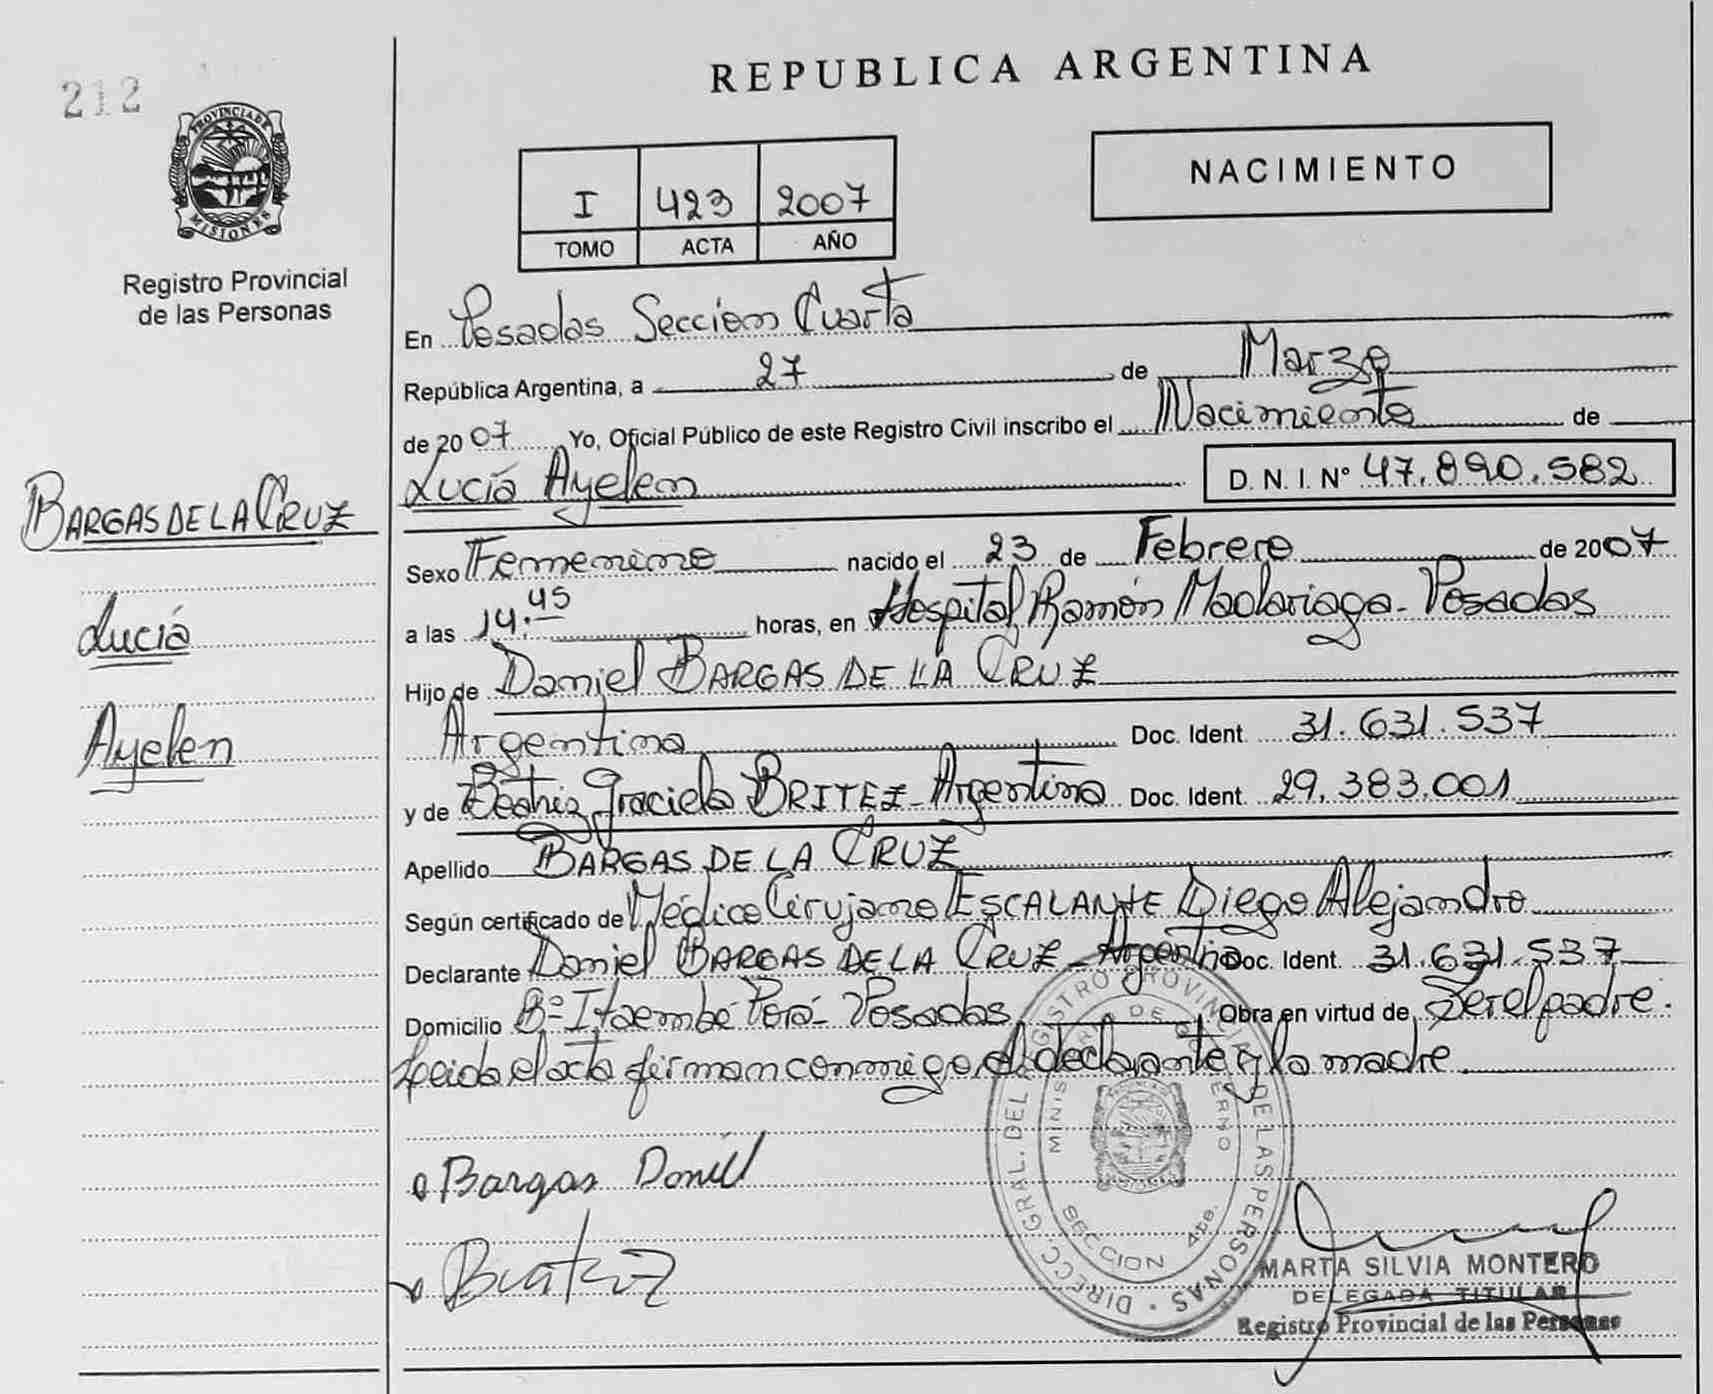 212
PROVINCIA DE
MISIONES
Registro Provincial
de las Personas
REPUBLICA ARGENTINA
I 423 2007
TOMO ACTA AÑO
NACIMIENTO
En Posadas Sección Cuarta
República Argentina, a 27 de Marzo
de 2007 Yo, Oficial Público de este Registro Civil inscribo el Nacimiento de
Lucía Ayelen D. N. I. Nº 47.890.582
BARGAS DE LA CRUZ
Lucía
Ayelen
Sexo Femenino nacido el 23 de Febrero de 2007
a las 14:45 horas, en Hospital Ramón Madariaga - Posadas
Hijo de Daniel BARGAS DE LA CRUZ
Argentina Doc. Ident. 31.631.537
y de Beatriz Graciela BRITEZ - Argentina Doc. Ident. 29.383.001
Apellido BARGAS DE LA CRUZ
Según certificado de Médico Cirujano ESCALANTE Diego Alejandro
Declarante Daniel BARGAS DE LA CRUZ - Doc. Ident. 31.631.537
Domicilio Bº Itaembé Porá - Posadas Obra en virtud de Ser el padre.
Leida el acta firman conmigo el declarante y la madre
Bargas Daniel
Beatriz
DIRECC. GRAL. DEL REGISTRO PROVINCIAL DE LAS PERSONAS
SECCION 4ta.
MARTA SILVIA MONTERO
DELEGADA TITULAR
Registro Provincial de las Personas